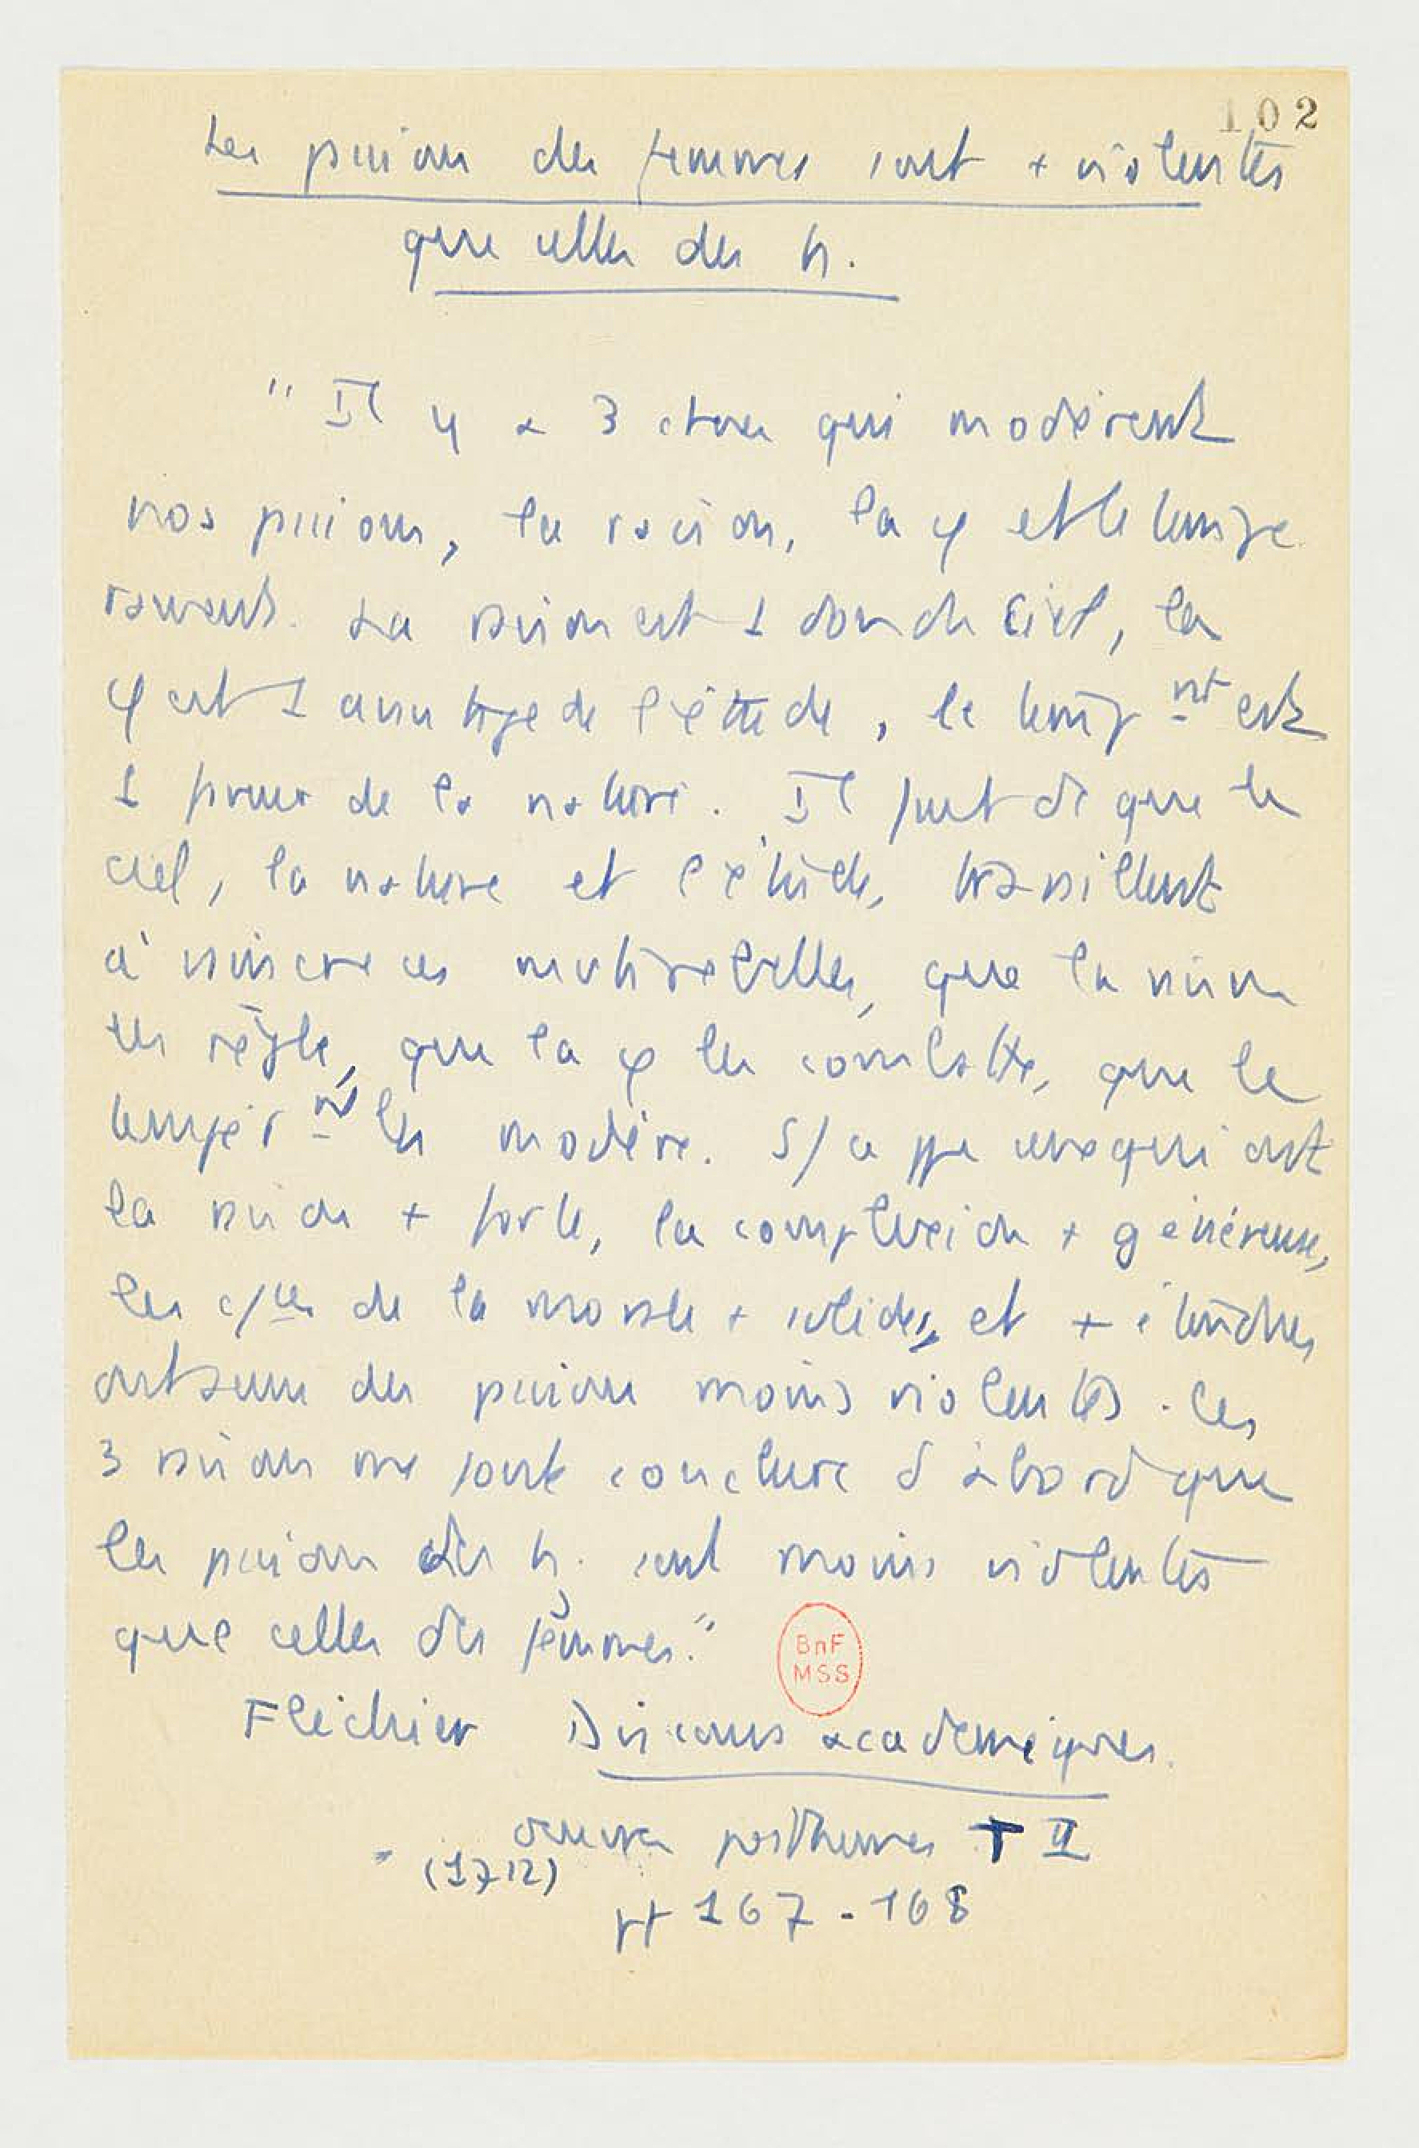 102
Les passions des femmes sont + violentes
que celles des h.
" Il y a 3 choses qui modèrent
nos passions, la raison, la φ et le tempé
rament. La raison est 1 don du Ciel, la
φ est 1 avantage de l'étude, le temp nt est
1 faveur de la nature. Il faut dc que le
ciel, la nature et l'étude, travaillent
à vaincre ces rebelles, que la raison
les règle, que la φ les combatte, que le
tempér nt les modère. S/ ce ppe ceux qui ont
la raison + forte, la complexion + généreuse,
les de la morale + solides, et + étendues
ont aussi des passions moins violentes. Ces
3 raisons me font conclure d'abord que
les passions des h. sont moins violentes
que celles des femmes."
BnF
MSS
Fléchier Discours académiques.
oeuvres posthumes T II
(1712)
pp 167-168